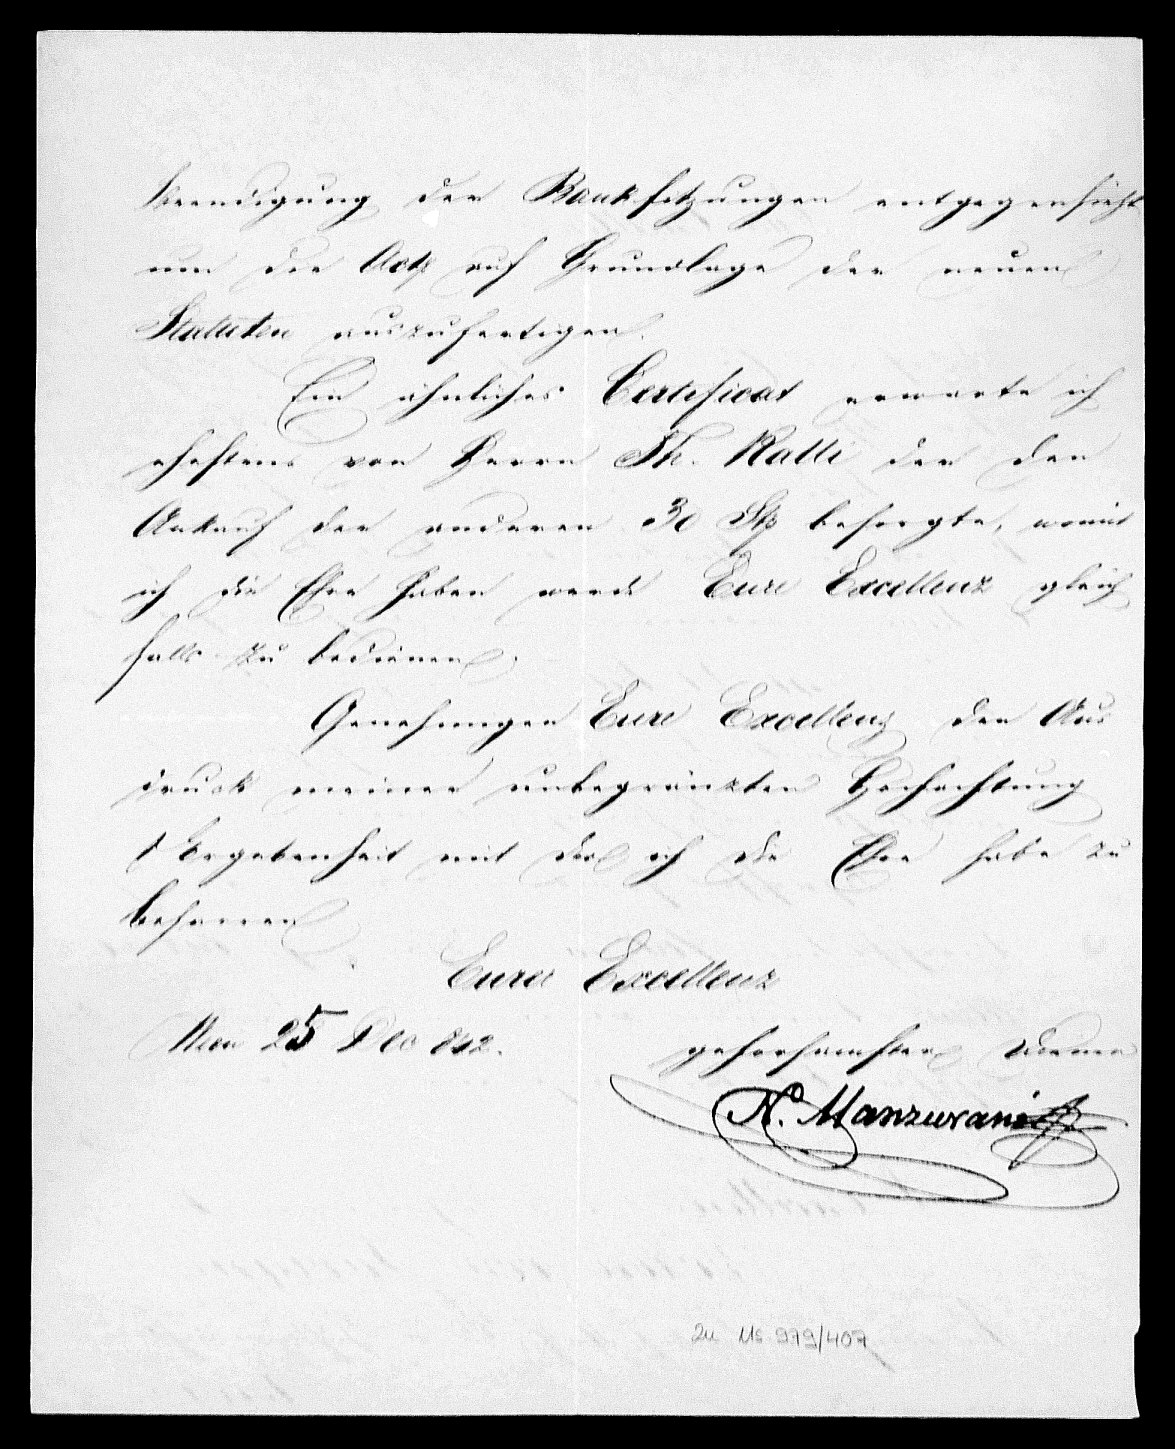 Beendigung der Banksitzungen entgegensieht
um die Act auf Grundlage der neuen
Statuten auszufertigen.
Ein ähnliches Certificat erwarte ich
ehestens von Herrn Th. Ralli der den
Ankauf der anderen 30 St besorgte, womit
ich die Ehre haben werde Eure Excellenz gleich
falls zu bedienen.
Genehmigen Eure Excellenz den Aus
druck meiner unbegränzten Hochachtung
& Ergebenheit mit der ich die Ehre habe zu
beharren
Eurer Excellenz
Wien 25 Dec 842.
gehorsamster Diener
N. Manzurani
zu Ms 979/407